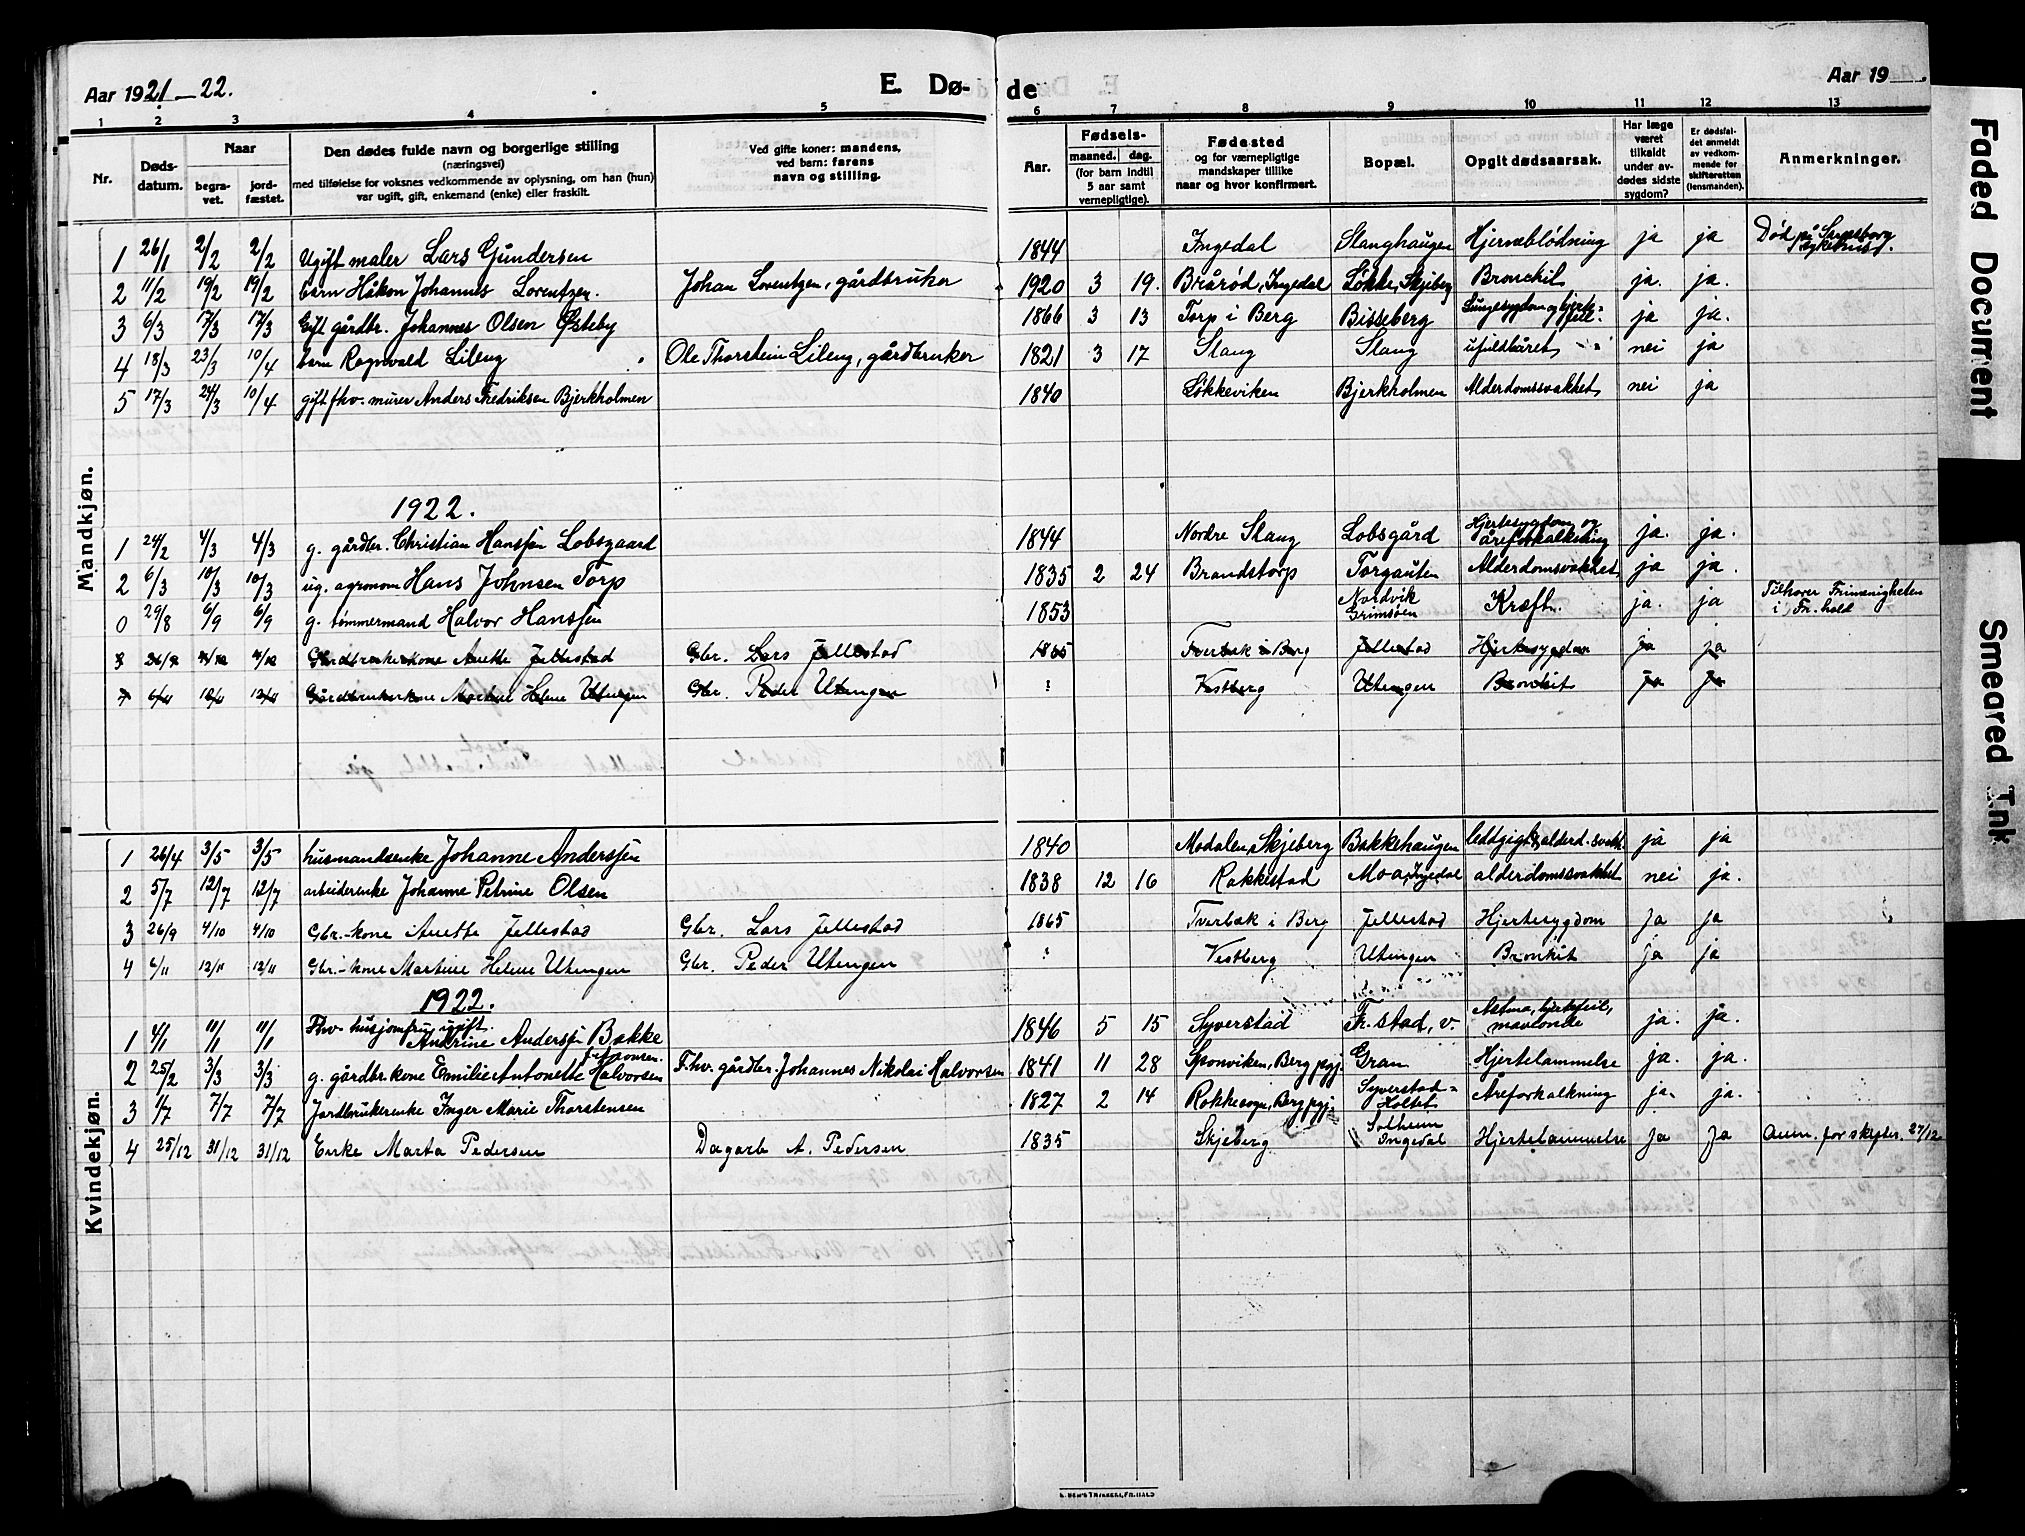 Aar 1921–22.
E. Dø-
de
Aar 19
1 2 3 4 5 6 7 8 9 10 11 12 13
Nr.
Døds-
datum.
Naar
begra-
vet.
jord-
fæstet.
Den dødes fulde navn og borgerlige stilling
(næringsvei)
med tilføielse for voksnes vedkommende av oplysning, om han (hun)
var ugift, gift, enkemand (enke) eller fraskilt.
Ved gifte koner: mandens,
ved barn: farens
navn og stilling.
Aar.
Fødsels-
maaned. dag.
(for barn indtil
5 aar samt
vernepligtige).
Fødested
og for værnepligtige
mandskaper tillike
naar og hvor konfirmert.
Bopæl.
Opgit dødsaarsak.
Har læge
været
tilkaldt
under av-
dødes sidste
sygdom?
Er dødsfal-
det anmeldt
av vedkom-
mende for
skifteretten
(lensmanden).
Anmerkninger.
Mandkjøn.
1 26/1 2/2 2/2 Ugift maler Lars Gundersen 1844 Ingedal Slanghaugen Hjerneblødning ja ja Død på Sarpsborg sykehus.
2 11/2 19/2 19/2 barn Håkon Johannes Lorentzen. Johan Lorentzen, gårdbruker 1920 3 19. Brårød, Ingedal Løkke, Skjeberg Bronchit ja. ja.
3 6/3 17/3 17/3 Gift gårdbr. Johannes Olsen Østeby 1866 3 13 Torp i Berg Bisseberg Lungesygdom og hjertefeil. ja ja.
4 18/3 23/3 10/4 barn Ragnvald Lileng Ole Thorstein Lileng, gårdbruker 1821 3 17 Slang Slang ufuldbåret nei ja
5 17/3 24/3 10/4 gift fhv. murer Anders Fredriksen Bjerkholmen 1840 Løkkeviken Bjerkholmen Alderdomssvakhet nei ja
1922.
1 24/2 4/3 4/3 g. gårdbr. Christian Hanssen Lobsgaard 1844 Nordre Slang Lobsgård Hjertesygdom og åreforkalkning ja. ja.
2 6/3 10/3 10/3 ug. agronom Hans Johnsen Torp 1835 2 24 Brandstorp Torgauten Alderdomsvakhet ja ja.
0 29/8 6/9 6/9 g. tømmermand Halvor Hanssen 1853 Nordvik Grimsøen Kræft. ja. ja Tilhører Frimenigheten i Fr.hald
3 26/9 4/10 4/10 Gårdbrukerkone Anette Jellestad Gbr. Lars Jellestad 1865 Tverbæk i Berg Jellestad Hjertesygdom ja ja
6/11 12/11 12/11 Gårdbrukerkone Martine Helene Utengen Gbr. Peder Utengen ? Vestberg Utengen Bronkit ja ja
Kvindekjøn.
1 26/4 3/5 3/5 husmandsenke Johanne Anderssen 1840 Modalen, Skjeberg Bakkehaugen leddgigt & alderd. svakh. ja ja
2 5/7 12/7 12/7 arbeiderenke Johanne Petrine Olsen 1838 12 16 Rakkestad Moa, Ingedal alderdomssvakhet nei ja.
3 26/9 4/10 4/10 Gbr.-kone Anette Jellestad Gbr. Lars Jellestad 1865 Tverbæk i Berg Jellestad Hjertesygdom ja ja
4 6/11 12/11 12/11 Gbr.-kone Martine Helene Utengen Gbr. Peder Utengen ? Vestberg Utengen Bronkit ja ja
1922.
1 4/1 11/1 11/1 Fhv. husjomfru ugift. Andrine Anderssen Bakke 1846 5 15 Syverstad Fr.stad, v. Astma, hjertefeil, mavlonde ja. ja.
2 25/2 3/3 3/3 g. gårdbr.kone Emilie Antonette Halvorsen F.hv. gårdbr. Johannes Nikolai Halvorsen 1841 11 28 Sponviken, Berg pgj. Gran Hjertelammelse ja. ja.
3 1/7 7/7 7/7 Jordbrukerenke Inger Marie Thorstensen 1827 2 14 Rokkesogn, Berg pgj. Syverstad-Holtet Åreforkalkning ja. ja.
4 25/12 31/12 31/12 Enke Marta Pedersen Dagarb. A. Pedersen 1835 Skjeberg Solheim Ingedal Hjertelammelse ja ja Anm. for skifter. 27/12
Faded Document
Smeared Ink